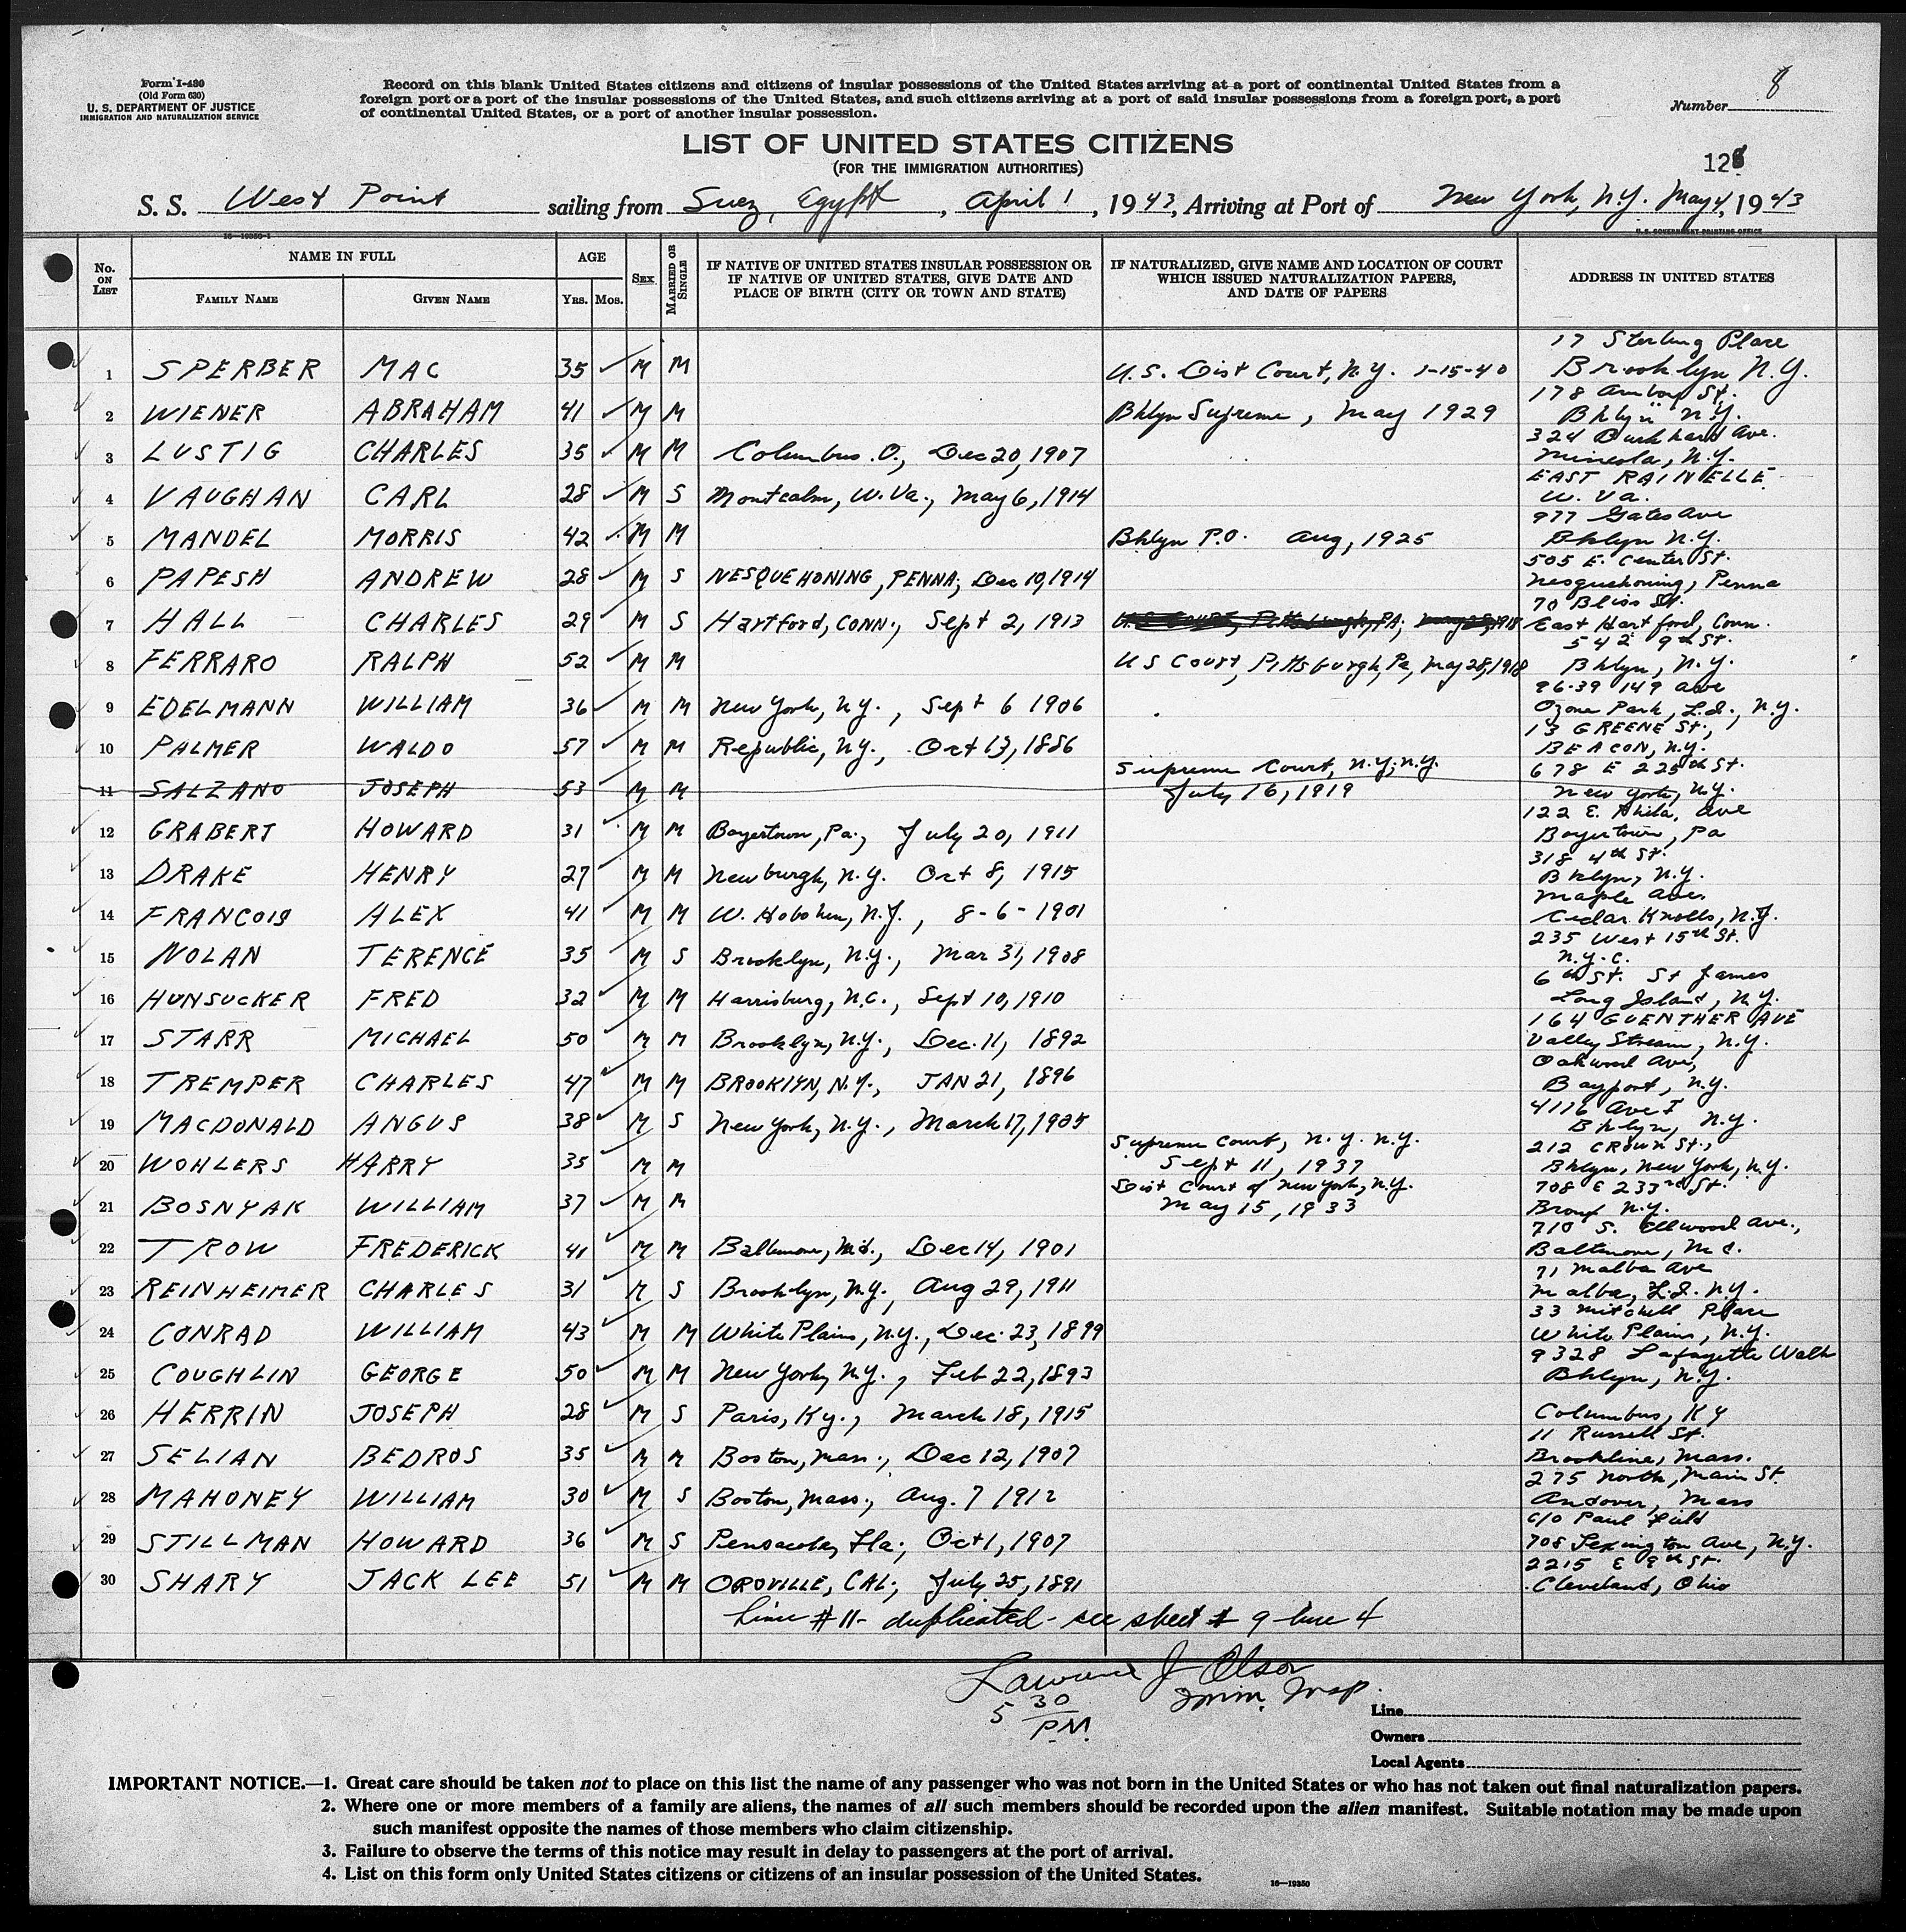 Form I-430
(Old Form 630)
U. S. DEPARTMENT OF JUSTICE
IMMIGRATION AND NATURALIZATION SERVICE
Record on this blank United States citizens and citizens of insular possessions of the United States arriving at a port of continental United States from a
foreign port or a port of the insular possessions of the United States, and such citizens arriving at a port of said insular possessions from a foreign port, a port
of continental United States, or a port of another insular possession.
Number 8
LIST OF UNITED STATES CITIZENS
(FOR THE IMMIGRATION AUTHORITIES)
S. S. West Point sailing from Suez, Egypt, April 1, 1943, Arriving at Port of New York, N.Y. May 4, 1943
16—19350-1
U. S. GOVERNMENT PRINTING OFFICE
No. ON LIST NAME IN FULL AGE SEX MARRIED OR SINGLE IF NATIVE OF UNITED STATES INSULAR POSSESSION OR IF NATIVE OF UNITED STATES, GIVE DATE AND PLACE OF BIRTH (CITY OR TOWN AND STATE) IF NATURALIZED, GIVE NAME AND LOCATION OF COURT WHICH ISSUED NATURALIZATION PAPERS, AND DATE OF PAPERS ADDRESS IN UNITED STATES
FAMILY NAME GIVEN NAME YRS. MOS.
17 Sterling Place
1 SPERBER MAC 35 M M U.S. Dist Court, N.Y. 1-15-40 Brooklyn N.Y.
178 Amboy St.
2 WIENER ABRAHAM 41 M M Bklyn Supreme, May 1929 Bklyn N.Y.
324 Burkhard Ave.
3 LUSTIG CHARLES 35 M M Columbus. O., Dec 20, 1907 Mineola, N.Y.
EAST RAINELLE
4 VAUGHAN CARL 28 M S Montcalm, W. Va., May 6, 1914 W. Va.
977 Gates Ave
5 MANDEL MORRIS 42 M M Bklyn P.O. Aug, 1925 Bklyn N.Y.
505 E. Center St.
6 PAPESH ANDREW 28 M S NESQUEHONING, PENNA; Dec 10, 1914 Nesquehoning, Penna
70 Bliss St.
7 HALL CHARLES 29 M S Hartford, CONN., Sept 2, 1913 U.S. Court, Pittsburgh, PA; May 28, 1918 East Hartford, Conn.
542 9th St.
8 FERRARO RALPH 52 M M U S Court, Pittsburgh, Pa, May 28, 1918 Bklyn, N.Y.
96-39 149 Ave
9 EDELMANN WILLIAM 36 M M New York, N.Y., Sept 6 1906 Ozone Park, L.I., N.Y.
13 GREENE St.,
10 PALMER WALDO 57 M M Republic, N.Y., Oct 13, 1886 BEACON, N.Y.
Supreme Court, N.Y; N.Y. 678 E 225th St.
11 SALZANO JOSEPH 53 M M July 16, 1919 New York, N.Y.
122 E. Phila. Ave
12 GRABERT HOWARD 31 M M Boyertown, Pa., July 20, 1911 Boyertown, Pa
318 4th St.
13 DRAKE HENRY 27 M M Newburgh, N.Y. Oct 8, 1915 Bklyn, N.Y.
Maple Ave.
14 FRANCOIS ALEX 41 M M W. Hoboken, N.J., 8-6-1901 Cedar Knolls, N.J.
235 West 15th St.
15 NOLAN TERENCE 35 M S Brooklyn, N.Y., Mar 31, 1908 N.Y.C.
6th St. St James
16 HUNSUCKER FRED 32 M M Harrisburg, N.C., Sept 10, 1910 Long Island, N.Y.
164 GUENTHER AVE
17 STARR MICHAEL 50 M M Brooklyn, N.Y., Dec. 11, 1892 Valley Stream, N.Y.
Oakwood Ave,
18 TREMPER CHARLES 47 M M BROOKLYN, N.Y., JAN 21, 1896 Bayport, N.Y.
4116 Ave I
19 MACDONALD ANGUS 38 M S New York, N.Y., March 17, 1905 Bklyn, N.Y.
Supreme Court, N.Y. N.Y. 212 CROWN St.,
20 WOHLERS HARRY 35 M M Sept 11, 1937 Bklyn, New York, N.Y.
Dist Court of New York, N.Y. 708 E 233rd St.
21 BOSNYAK WILLIAM 37 M M May 15, 1933 Bronx N.Y.
710 S. Ellwood Ave.,
22 TROW FREDERICK 41 M M Baltimore, Md., Dec 14, 1901 Baltimore, Md.
71 Malba Ave
23 REINHEIMER CHARLES 31 M S Brooklyn, N.Y., Aug 29, 1911 Malba, L.I. N.Y.
33 Mitchell Place
24 CONRAD WILLIAM 43 M M White Plains, N.Y., Dec. 23, 1899 White Plains, N.Y.
9328 Lafayette Walk
25 COUGHLIN GEORGE 50 M M New York, N.Y., Feb 22, 1893 Bklyn, N.Y.
26 HERRIN JOSEPH 28 M S Paris, Ky., March 18, 1915 Columbus, KY
11 Russell St.
27 SELIAN BEDROS 35 M M Boston, Mass., Dec 12, 1907 Brookline, Mass.
275 North Main St.
28 MAHONEY WILLIAM 30 M S Boston, Mass., Aug. 7 1912 Andover, Mass
c/o Paul Field
29 STILLMAN HOWARD 36 M S Pensacola, Fla., Oct 1, 1907 708 Lexington Ave, N.Y.
2215 E 9th St.
30 SHARY JACK LEE 51 M M OROVILLE, CAL., July 25, 1891 Cleveland, Ohio
Line #11 - duplicated - see sheet # 9 line 4
Lawrence J Olson
Imm. Insp.
5 30 PM
Line
Owners
Local Agents
IMPORTANT NOTICE.—1. Great care should be taken not to place on this list the name of any passenger who was not born in the United States or who has not taken out final naturalization papers.
2. Where one or more members of a family are aliens, the names of all such members should be recorded upon the alien manifest. Suitable notation may be made upon
such manifest opposite the names of those members who claim citizenship.
3. Failure to observe the terms of this notice may result in delay to passengers at the port of arrival.
4. List on this form only United States citizens or citizens of an insular possession of the United States.
16—19350